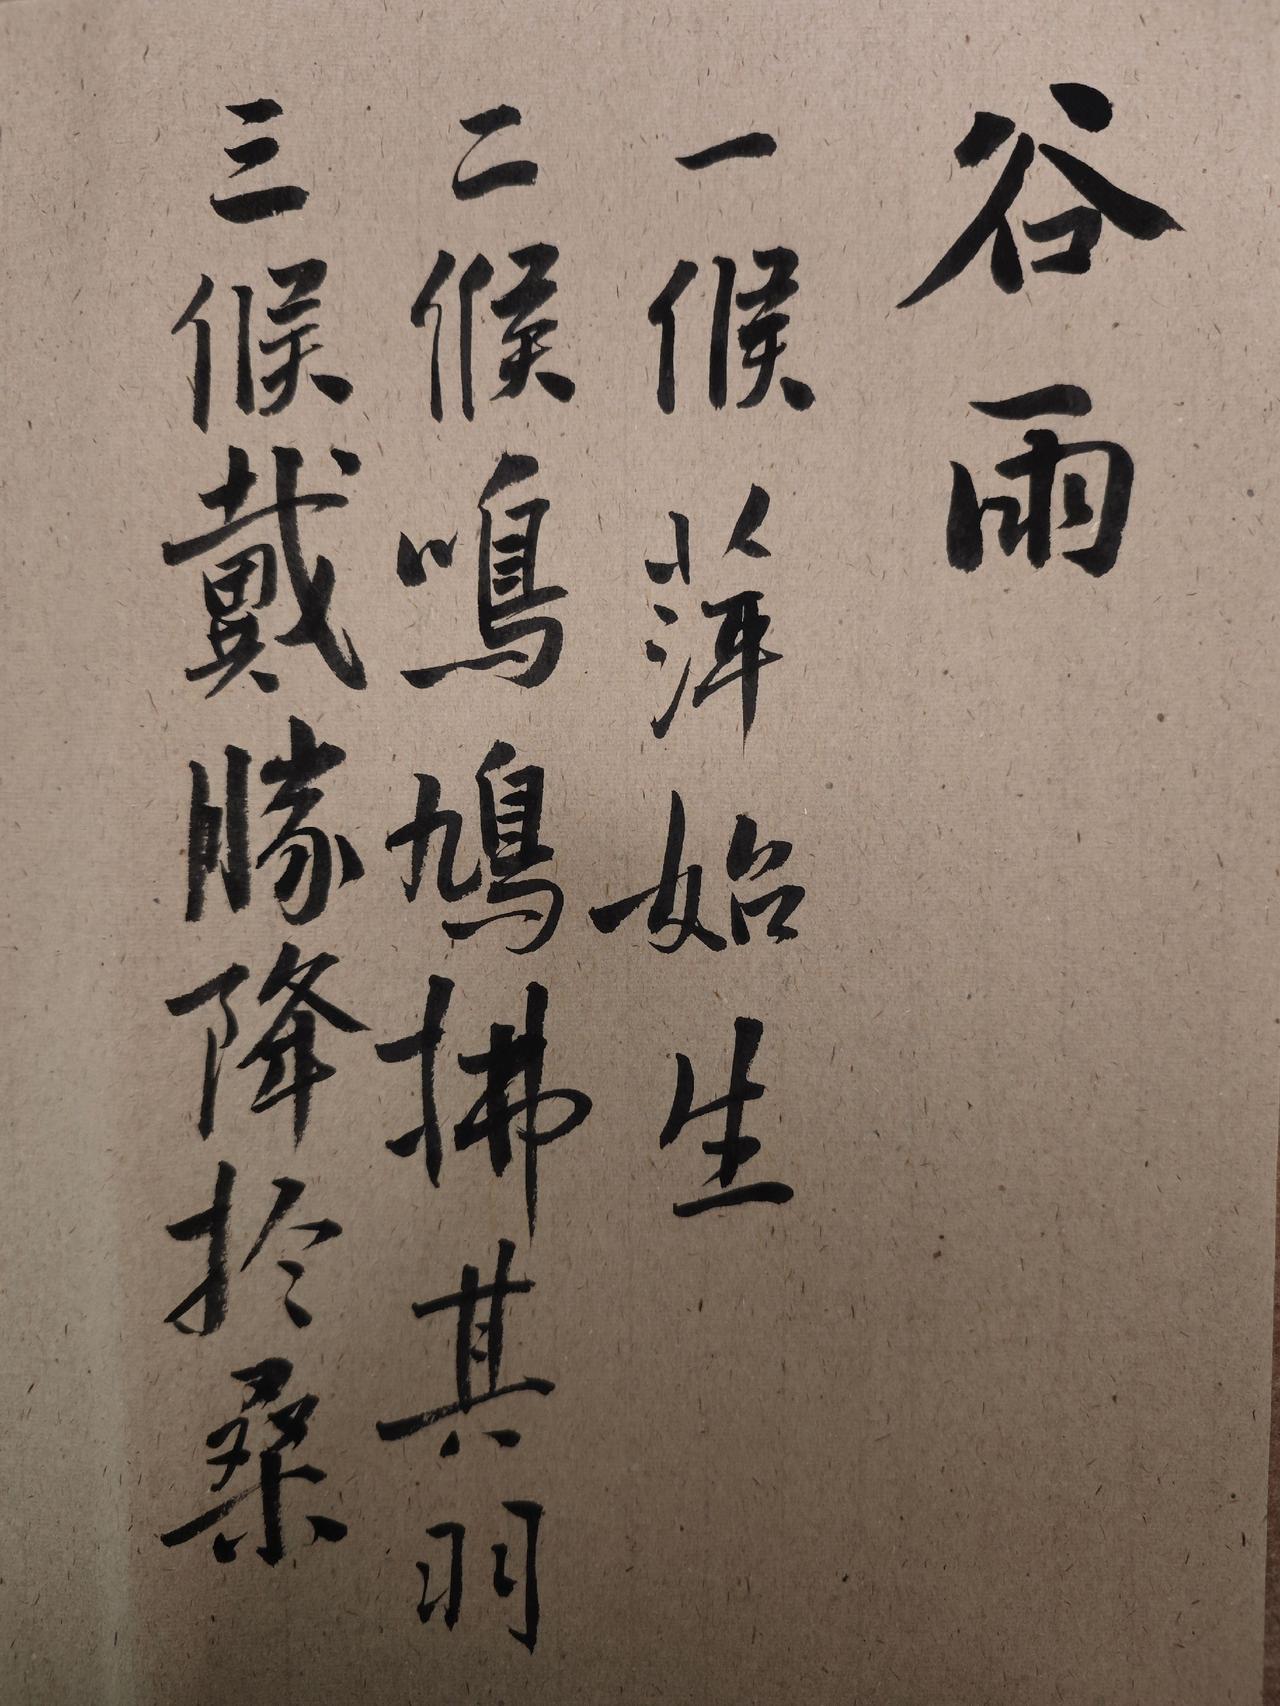 谷雨
一候萍始生
二候鳴鳩拂其羽
三候戴勝降於桑